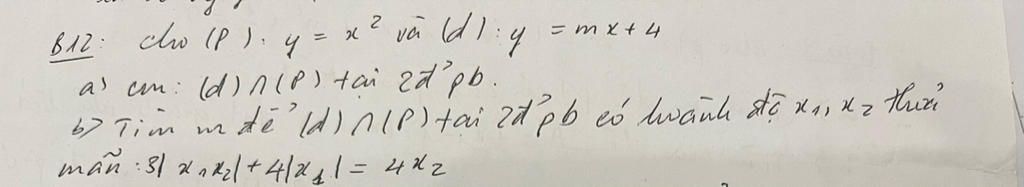 B12: cho (P): y = x² và (d): y = mx+4
a) cm: (d)∩(P) tại 2đ' pb.
b) Tìm m để (d)∩(P) tại 2đ' pb có hoành độ x₁, x₂ thoả
mãn: 3|x₁x₂| + 4|x₁| = 4x₂